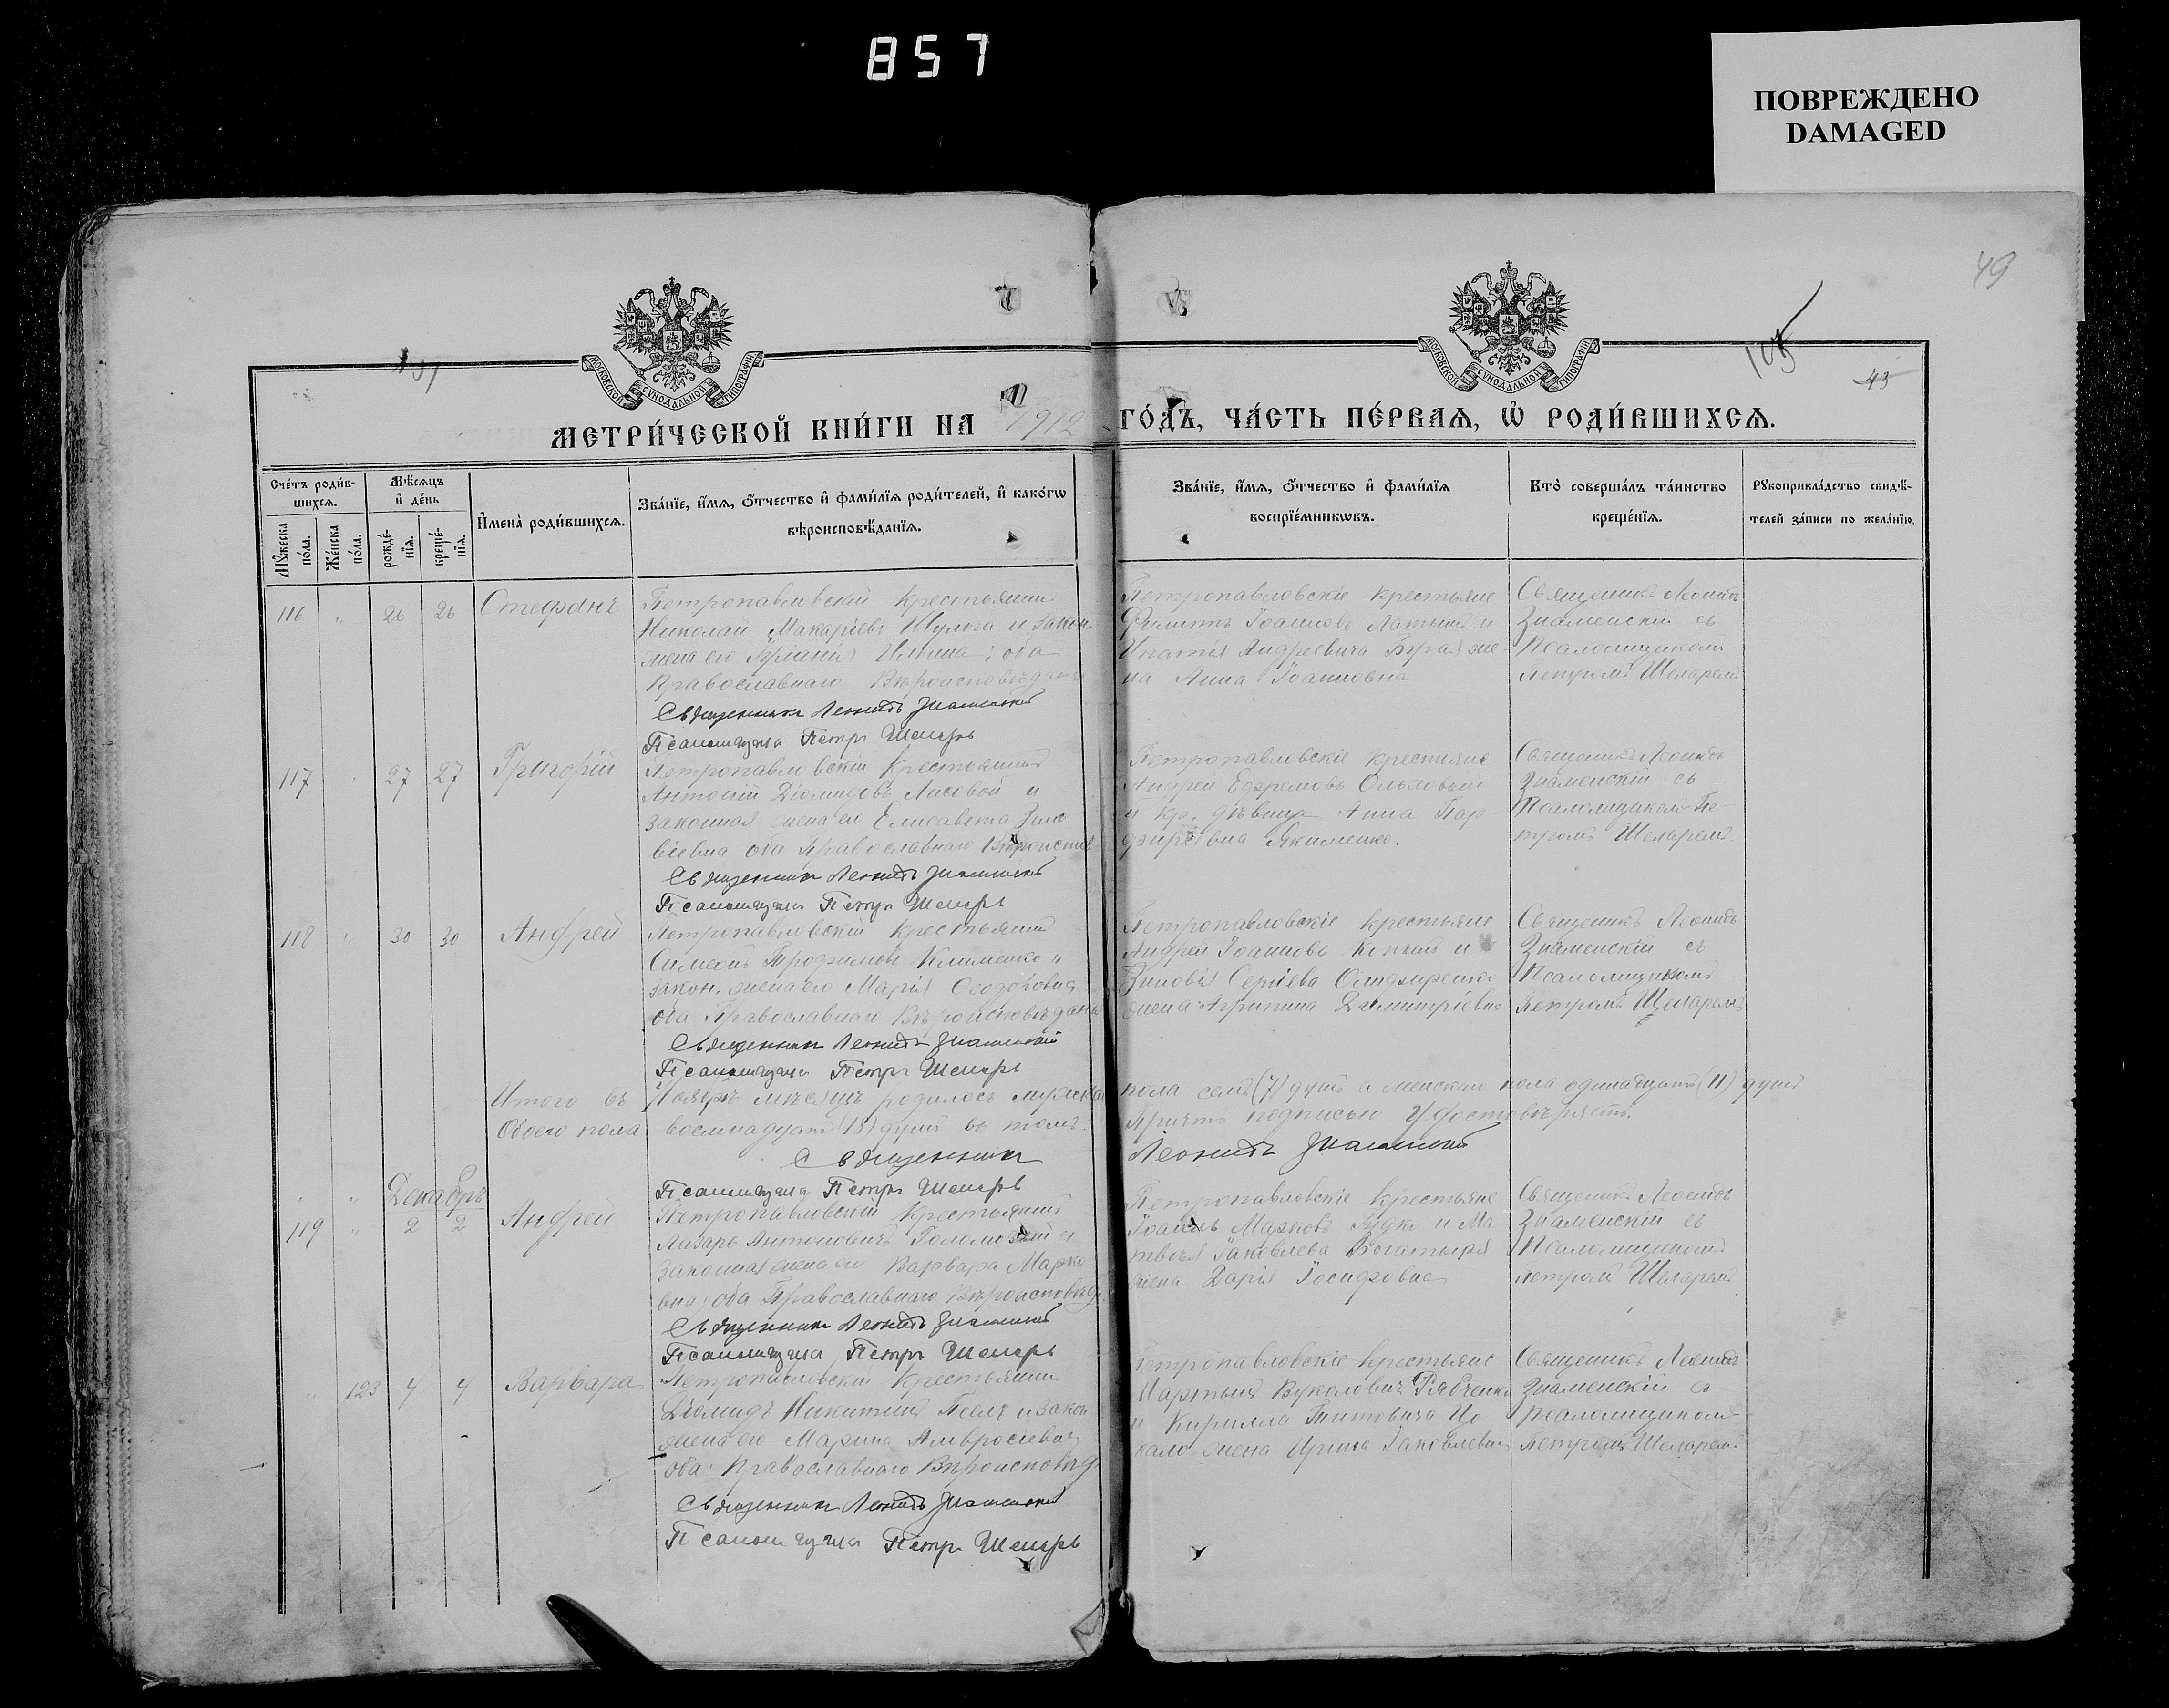 857
ПОВРЕЖДЕНО
DAMAGED
49
105
43
МОСКОВСКОЙ СѴНОДАЛЬНОЙ ТИПОГРАФІИ
МОСКОВСКОЙ СѴНОДАЛЬНОЙ ТИПОГРАФІИ
МЕТРИ́ЧЕСКОЙ КНИ́ГИ НА 1912 ГО́ДЪ, ЧА́СТЬ ПЕ́РВАѦ, Ѡ҆ РОДИ́ВШИХСѦ.
Сче́тъ роди́в-
шихсѧ.
Мꙋжеска по́ла.
Же́нска по́ла.
Мѣ́сѧцъ
и҆ де́нь
рожде́-
нїѧ.
креще́-
нїѧ.
И҆мена̀ роди́вшихсѧ.
Зва́нїе, и҆́мѧ, ѻ҆́тчество и҆ фами́лїѧ роди́телей, и҆ како́гѡ
вѣроисповѣ́данїѧ.
Зва́нїе, и҆́мѧ, ѻ҆́тчество и҆ фами́лїѧ
воспрїе́мникѡвъ.
Кто̀ соверша́лъ та́инство
креще́нїѧ.
Рꙋкоприкла́дство свидѣ́-
телей за́писи по жела́нїю.
116 " 26 26 Стефанъ
Петропавловскій крестьянинъ
Николай Макаріевъ Шульга и закон.
жена его Ильина; оба
Православнаго Вѣроисповѣданія
Священникъ Леонидъ Знаменскій
Псаломщикъ Петръ Шеларь
Петропавловскіе крестьяне
Филиппъ Іоанновъ и
Игнатія Андреевича же-
на Анна Іоанновна
Священникъ Леонидъ
Знаменскій съ
Псаломщикомъ
Петромъ Шеларемъ
117 " 27 27 Григорій
Петропавловскій крестьянинъ
Антоній Діомидовъ Лисовой и
законная жена его Елисавета Зино
віевна оба Православнаго Вѣроиспов
Священникъ Леонидъ Знаменскій
Псаломщикъ Петръ Шеларь
Петропавловскіе крестьяне
Андрей Ефремовъ Ольховый
и кр. дѣвица Анна Пор-
фирьевна Якименко.
Священникъ Леонидъ
Знаменскій съ
Псаломщикомъ Пе-
тромъ Шеларемъ.
118 " 30 30 Андрей
Петропавловскій крестьянинъ
Симеонъ Трофимовъ Клименко и
закон. жена его Марія Ѳеодоровна
оба Православнаго Вѣроисповѣдані
Священникъ Леонидъ Знаменскій
Псаломщикъ Петръ Шеларь
Петропавловскіе крестьяне
Андрей Іоанновъ и
Зиновія Сергіева
жена Агрипина Димитріевна
Священникъ Леонидъ
Знаменскій съ
Псаломщикомъ
Петромъ Шеларемъ
Итого въ Ноябрѣ мѣсяцѣ родилось мужска пола семь (7) душъ а женскаго пола одинадцать (11) душъ
Обоего пола восемнадцать (18) душъ въ томъ Причтъ подписью удостовѣряетъ.
Священникъ Леонидъ Знаменскій
Псаломщикъ Петръ Шеларь
" " Декабрь
119 " 2 2 Андрей
Петропавловскій крестьянинъ
Лазарь Антоновичъ и
законная жена его Варвара Марко
вна; оба Православнаго Вѣроисповѣд.
Священникъ Леонидъ Знаменскій
Псаломщикъ Петръ Шеларь
Петропавловскіе крестьяне
Іоаннъ Марковъ Гудко и Ма
твѣя Іаковлева Богатыря
жена Дарія Іосифовна
Священникъ Леонидъ
Знаменскій съ
Псаломщикомъ
Петромъ Шеларемъ
" 123 4 4 Варвара
Петропавловскій крестьянинъ
Діомидъ Никитинъ и закон
жена его Марина Амвросіевна
оба Православнаго Вѣроисповѣд
Священникъ Леонидъ Знаменскій
Псаломщикъ Петръ Шеларь
Петропавловскіе крестьяне
Мартынъ Вуколовичъ Рябченко
и Кирилла Титовича Цо
кало жена Ирина Іаковлевна
Священникъ Леонидъ
Знаменскій съ
Псаломщикомъ
Петромъ Шеларемъ